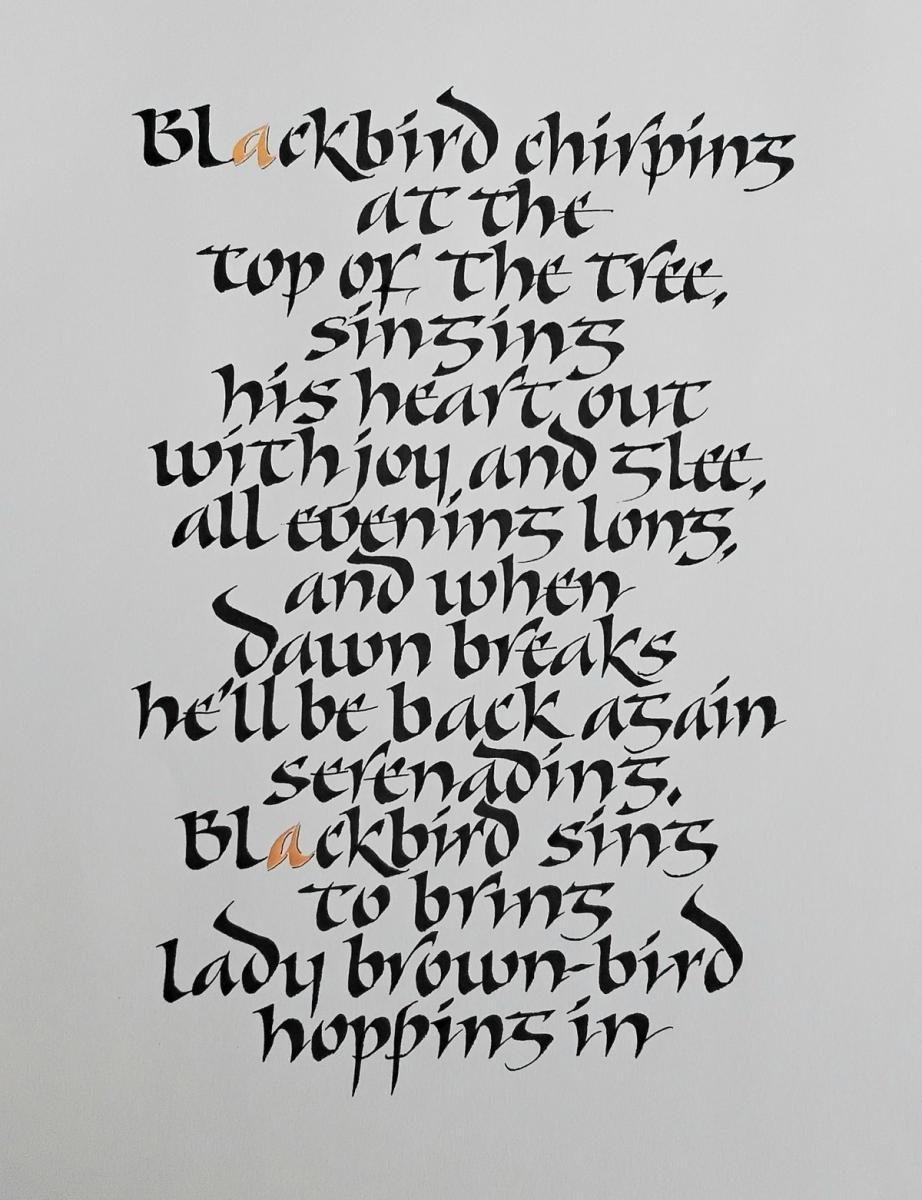 Blackbird chirping
at the
top of the tree,
singing
his heart out
with joy and glee,
all evening long,
and when
dawn breaks
he'll be back again
serenading.
Blackbird sing
to bring
lady brown-bird
hopping in